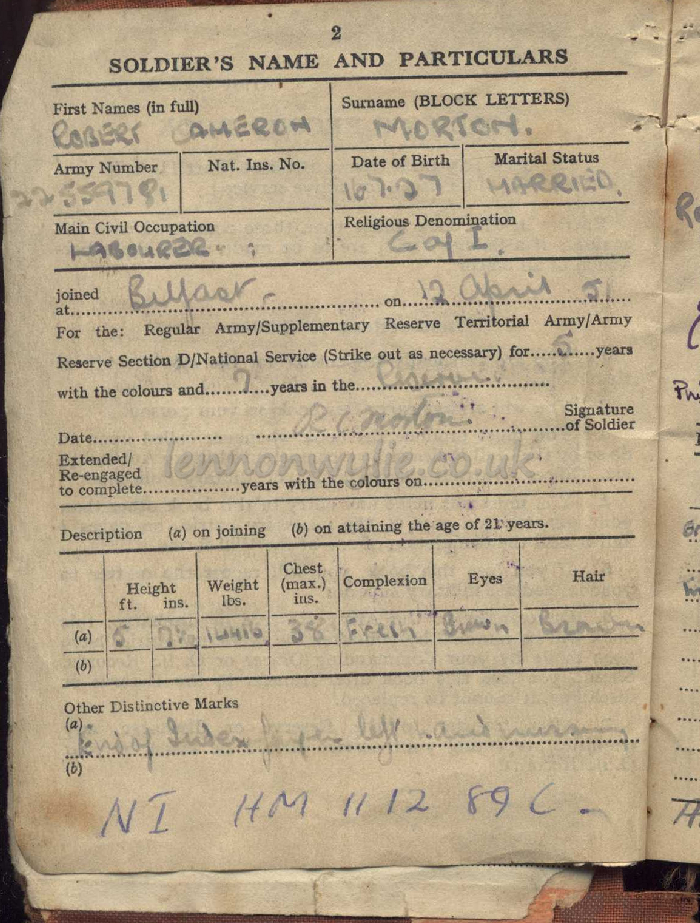 2
SOLDIER'S NAME AND PARTICULARS
First Names (in full)
Surname (BLOCK LETTERS)
ROBERT CAMERON
MORTON.
Army Number
Nat. Ins. No.
Date of Birth
Marital Status
22559781
16.7.27
MARRIED.
Main Civil Occupation
Religious Denomination
LABOURER
C of I.
joined
at Belfast on 12 April 51
For the: Regular Army/Supplementary Reserve Territorial Army/Army
Reserve Section D/National Service (Strike out as necessary) for 5 years
with the colours and 7 years in the Reserve
R C Morton
Signature
of Soldier
Date
lennonwylie.co.uk
Extended/
Re-engaged
to complete years with the colours on
Description (a) on joining (b) on attaining the age of 21 years.
Height
ft. ins.
Weight
lbs.
Chest
(max.)
ins.
Complexion
Eyes
Hair
(a) 5 38 Fresh Brown Brown
(b)
Other Distinctive Marks
(a)
End of Index finger left hand missing
(b)
NI HM 11 12 89 C -